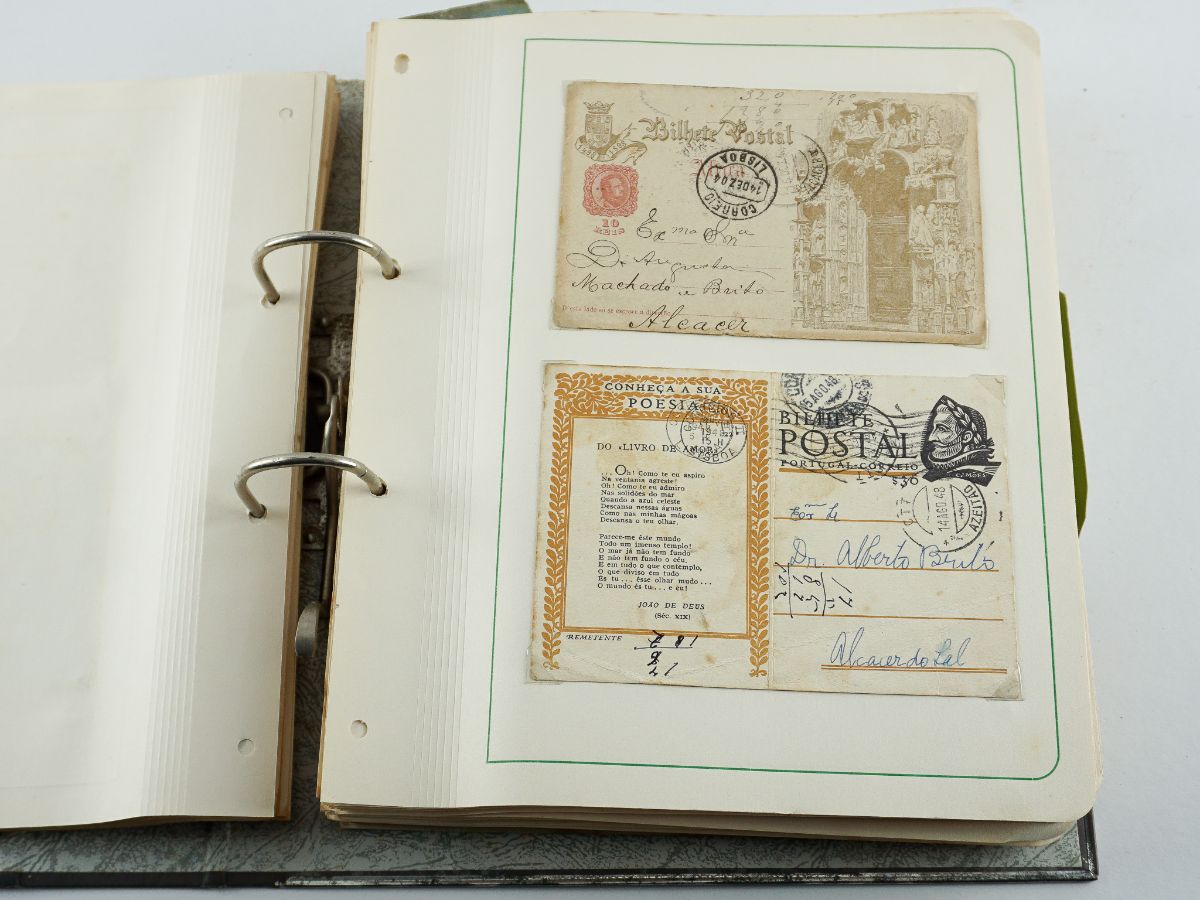 Bilhete Postal
CORREIO
14 DEZ 04
LISBOA
10
REIS
Exma Snra
D. Augusta
Machado e Brito
Alcacer
CONHEÇA A SUA
POESIA
DO «LIVRO DE AMOR»
...Oh! Como te eu aspiro
Na ventania agreste!
Oh! Como te eu admiro
Nas solidões do mar
Quando a azul celeste
Descansa nessas águas
Como nas minhas mágoas
Descansa o teu olhar.
Parece-me êste mundo
Todo um imenso templo!
O mar já não tem fundo
E não tem fundo o céu.
E em tudo o que contemplo,
O que diviso em tudo
Es tu... êsse olhar mudo...
O mundo és tu... e eu!
JOÃO DE DEUS
(Séc. XIX)
REMETENTE
15 AGO. 48
BILHETE
POSTAL
PORTUGAL-CORREIO
$30
CAMÕES
CTT
14 AGO. 48
AZEITÃO
Dr. Alberto Brito
Alcacer do Sal